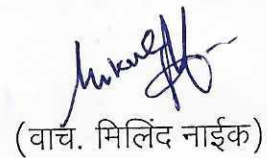 (वाच. मिलिंद नाईक)